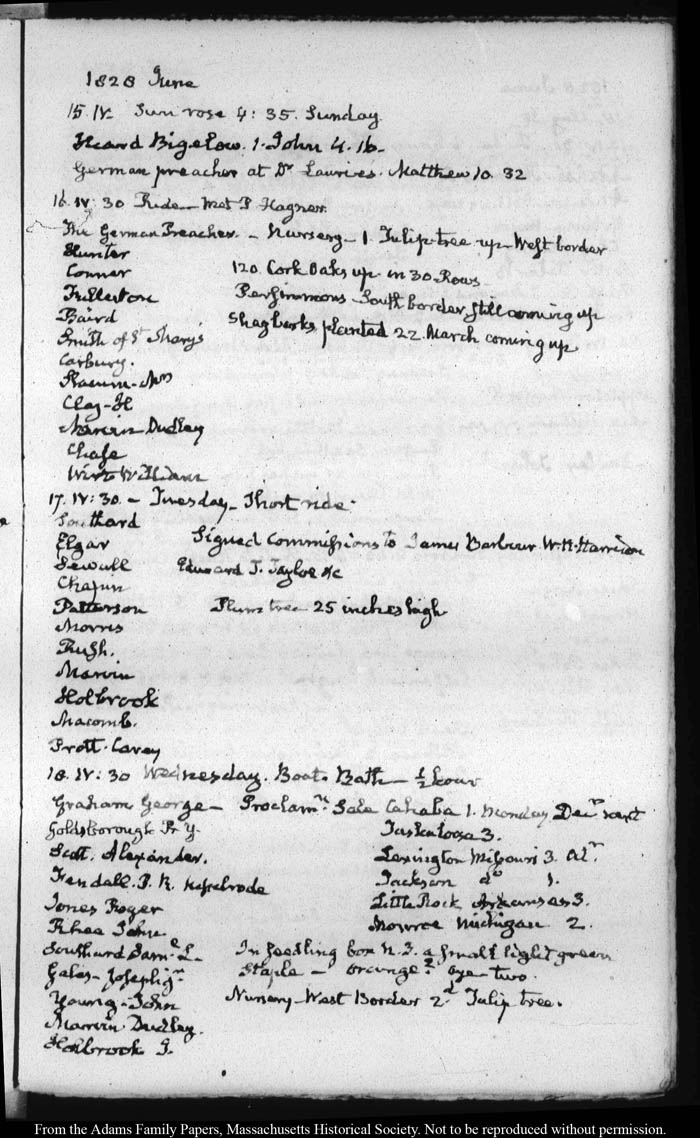 1828 June
15. IV. Sun rose 4:35. Sunday
Heard Bigelow. 1. John 4. 16.
German preacher at Dr Lauries. Matthew 10. 32
16. IV:30 Ride — met P. Hagner.
The German Preacher. — Nursery — 1. Tulip-tree up West border
Hunter
Conner 120. Cork Oaks up in 30 Rows
Fullerton Persimmons — South border still coming up
Baird Shagbarks planted 22. March coming up
Smith of St Mary's
Carbury.
Slacum — Mrs
Clay — H
Marvin Dudley
Chase
Wirt William
17. IV:30. — Tuesday — Short ride.
Southard
Elgar Signed Commissions to James Barbour. W. H. Harrison
Sewall Edward T. Tayloe &c
Chapin
Patterson Plum tree 25 inches high
Morris
Rush.
Marvin
Holbrook
Macomb.
Pratt. Carey
18. IV:30 Wednesday. Boat. Bath — ½ hour
Graham George — Proclamn. Sale Cahaba 1. Monday Decr next
Goldsborough Tuskaloosa 3.
Scott. Alexander. Lexington Missouri 3.
Kendall. Jackson do 1.
Jones Roger Little Rock Arkansas 3.
Rhea John Monroe Michigan 2.
Southard Saml. L. In seedling box N. 3. a small light green
Gales — Joseph jr Staple — orange? eye — two.
Young — John Nursery — West Border 2d Tulip tree.
Marvin. Dudley.
Holbrook J.
From the Adams Family Papers, Massachusetts Historical Society. Not to be reproduced without permission.